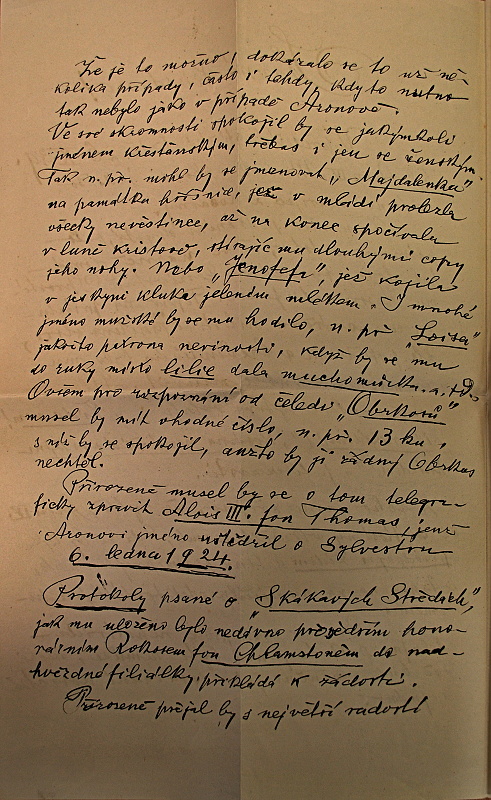 Že je to možno, dokázalo se to už ně-
kolika případy, často i tehdy, kdy to nutno
tak nebylo jako v případě Aronově.
Ve své skromnosti spokojil by se jakýmkoli
jménem křesťanským, třebas i jen se ženským.
Tak n. př. mohl by se jmenovat „Majdalenka"
na památku hříšnice, jež v mládí prolezla
všecky nevěstince, až na konec spočívala
v luně Kristově, stírajíc mu dlouhými copy
jeho nohy. Nebo „Jenofefa", jež kojila
v jeskyni kluka jelením mlékem. I mnohé
jméno mužské by se mu hodilo, n. př. „Loisa"
jakožto patrona nevinosti, když by se mu
do ruky místo lilie dala muchomůrka. a. t. D.
Ovšem pro rozpoznání od čeledi „Obrkasů"
musel by mít vhodné číslo, n. př. 13 ku,
s níž by se spokojil, anžto by ji žádný Obrkas
nechtěl.
Přirozeně musel by se o tom telegra-
ficky zpravit Alois III. fon Thomas, jenž
Aronovi jméno udědil o Sylvestru
6. ledna 1924.
Protokoly psané o „Skákavých Středách",
jak mu uloženo bylo nedávno prozřením hono-
rárním Rokosem fon Chlamstoněm do nad-
hvězdné filiálky, přikládá k žádosti.
Přirozeně přijel by s největší radostí